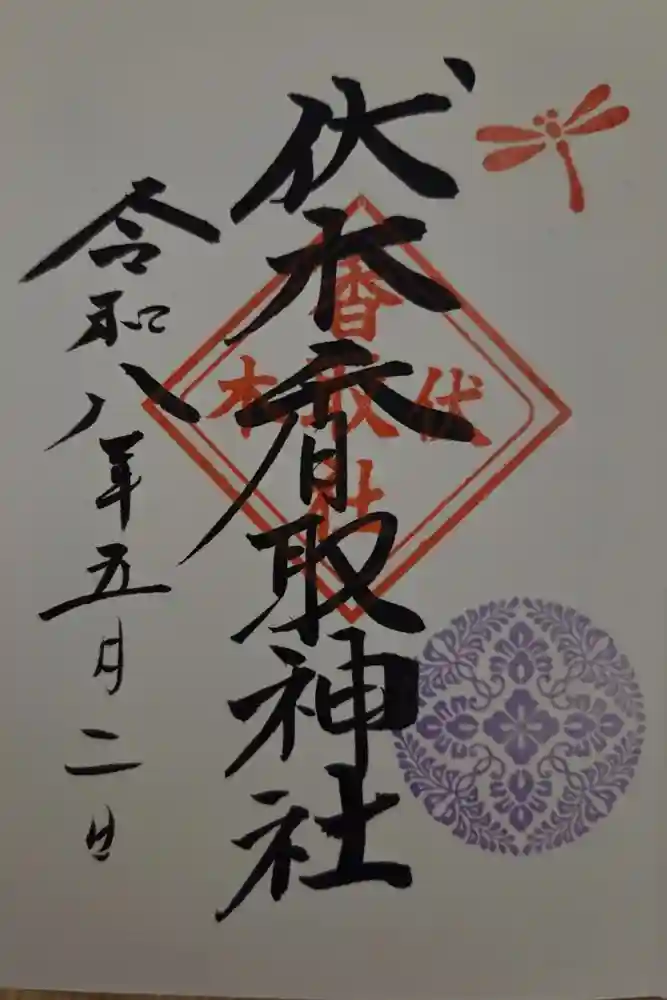 伏木香取神社
令和八年五月二日
香
伏取木
社